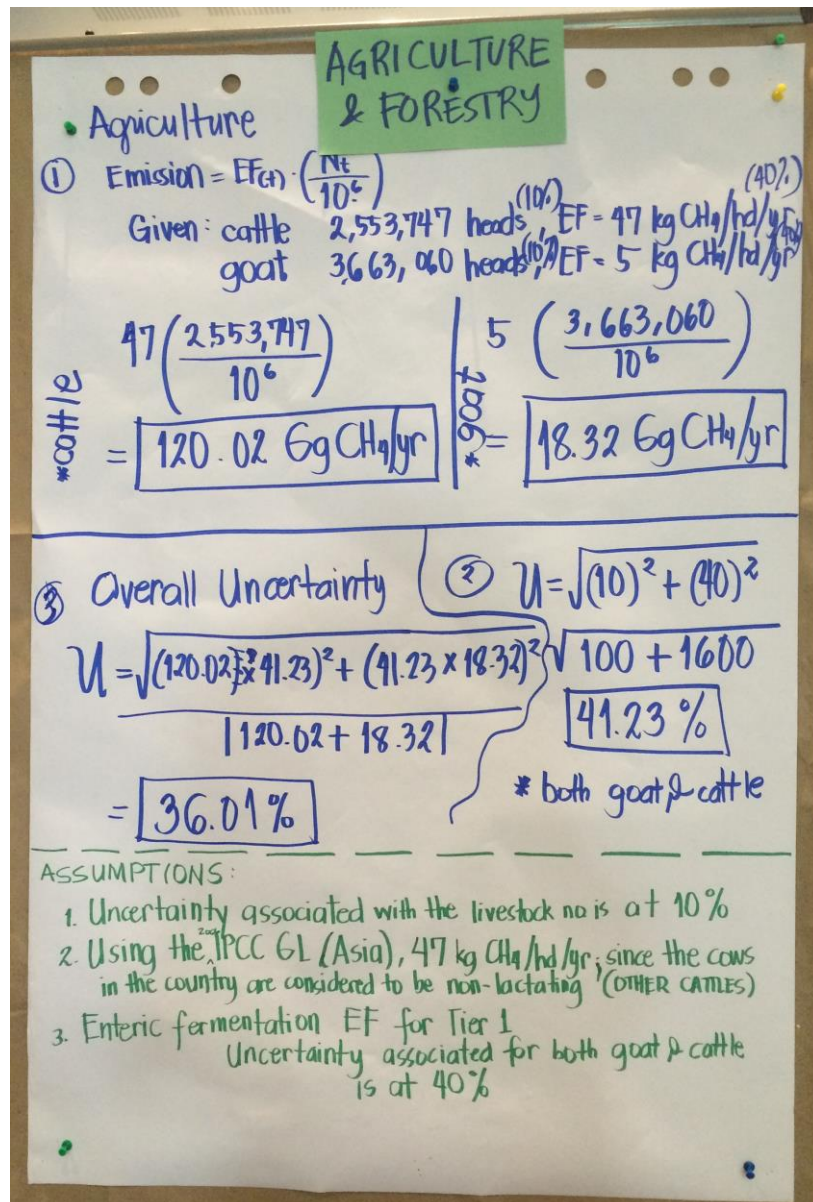 AGRICULTURE
& FORESTRY
• Agriculture
① Emission = EF(t) · (Nt / 10⁶)
Given: cattle 2,553,747 heads (10%), EF = 47 kg CH4/hd/yr (40%)
goat 3,663,060 heads (10%), EF = 5 kg CH4/hd/yr (40%)
*cattle
47 (2,553,747 / 10⁶)
= 120.02 Gg CH4/yr
*goat
5 (3,663,060 / 10⁶)
= 18.32 Gg CH4/yr
② U = √(10)² + (40)²
√100 + 1600
41.23 %
* both goat & cattle
③ Overall Uncertainty
U = √(120.02 x 41.23)² + (41.23 x 18.32)²
|120.02 + 18.32|
= 36.01%
ASSUMPTIONS:
1. Uncertainty associated with the livestock no is at 10%
2. Using the 2006 IPCC GL (Asia), 47 kg CH4/hd/yr; since the cows
in the country are considered to be non-lactating (OTHER CATTLES)
3. Enteric fermentation EF for Tier 1
Uncertainty associated for both goat & cattle
is at 40%